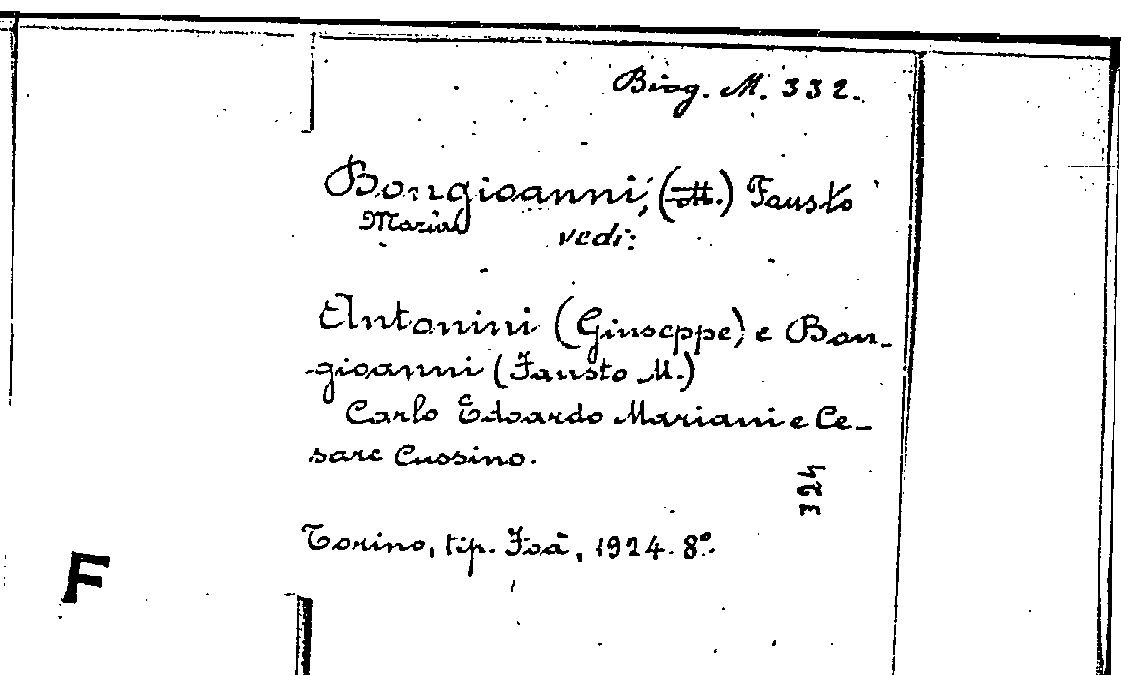 Biog. M. 332.
Bongioanni, (M.) Fausto
Maria
vedi:
Antonini (Giuseppe) e Bon-
-gioanni (Fausto M.)
Carlo Edoardo Mariani e Ce-
sare Cuosino.
324
Torino, tip. Foà, 1924. 8º.
F